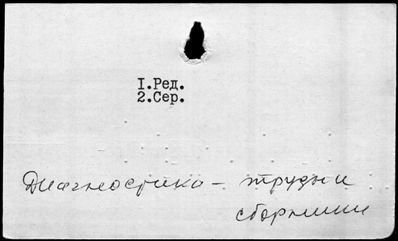 1.Ред.
2.Сер.
Диагностика – труды и
сборники